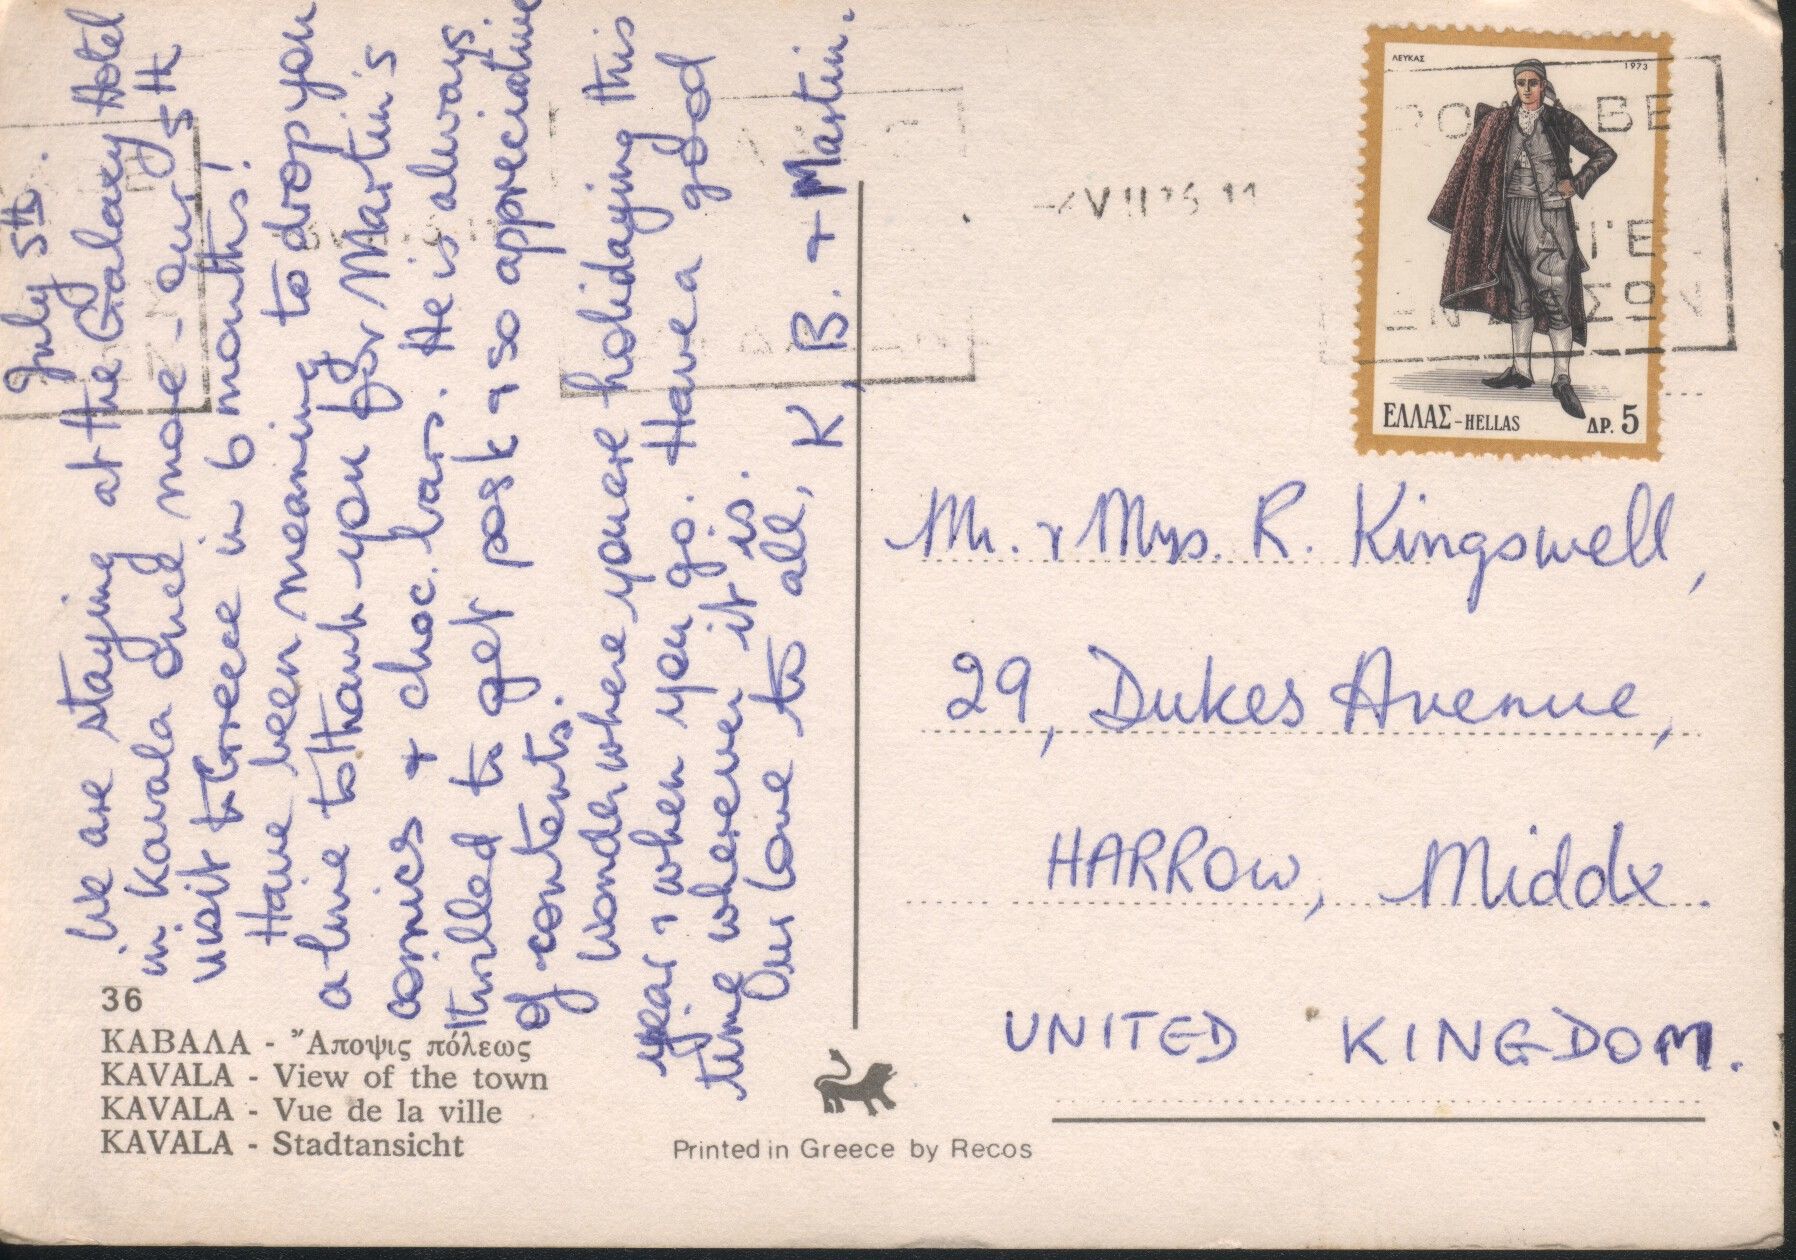 July 5th.
We are staying at the Galaxy Hotel
in Kavala once more - our 5th
visit to Greece in 6 months!
Have been meaning to drop you
a line to thank you for Martin's
comics + choc. bars. He is always
thrilled to get post & so appreciative
of contents.
Wonder where you are holidaying this
year & when you go. Have a good
time wherever it is.
Our love to all, K, B. + Martin.
36
ΚΑΒΑΛΑ - Ἄποψις πόλεως
KAVALA - View of the town
KAVALA - Vue de la ville
KAVALA - Stadtansicht
Printed in Greece by Recos
ΛΕΥΚΑΣ 1973
ΕΛΛΑΣ-HELLAS ΔΡ. 5
Mr. & Mrs. R. Kingswell,
29, Dukes Avenue,
HARROW, Middx.
UNITED KINGDOM.